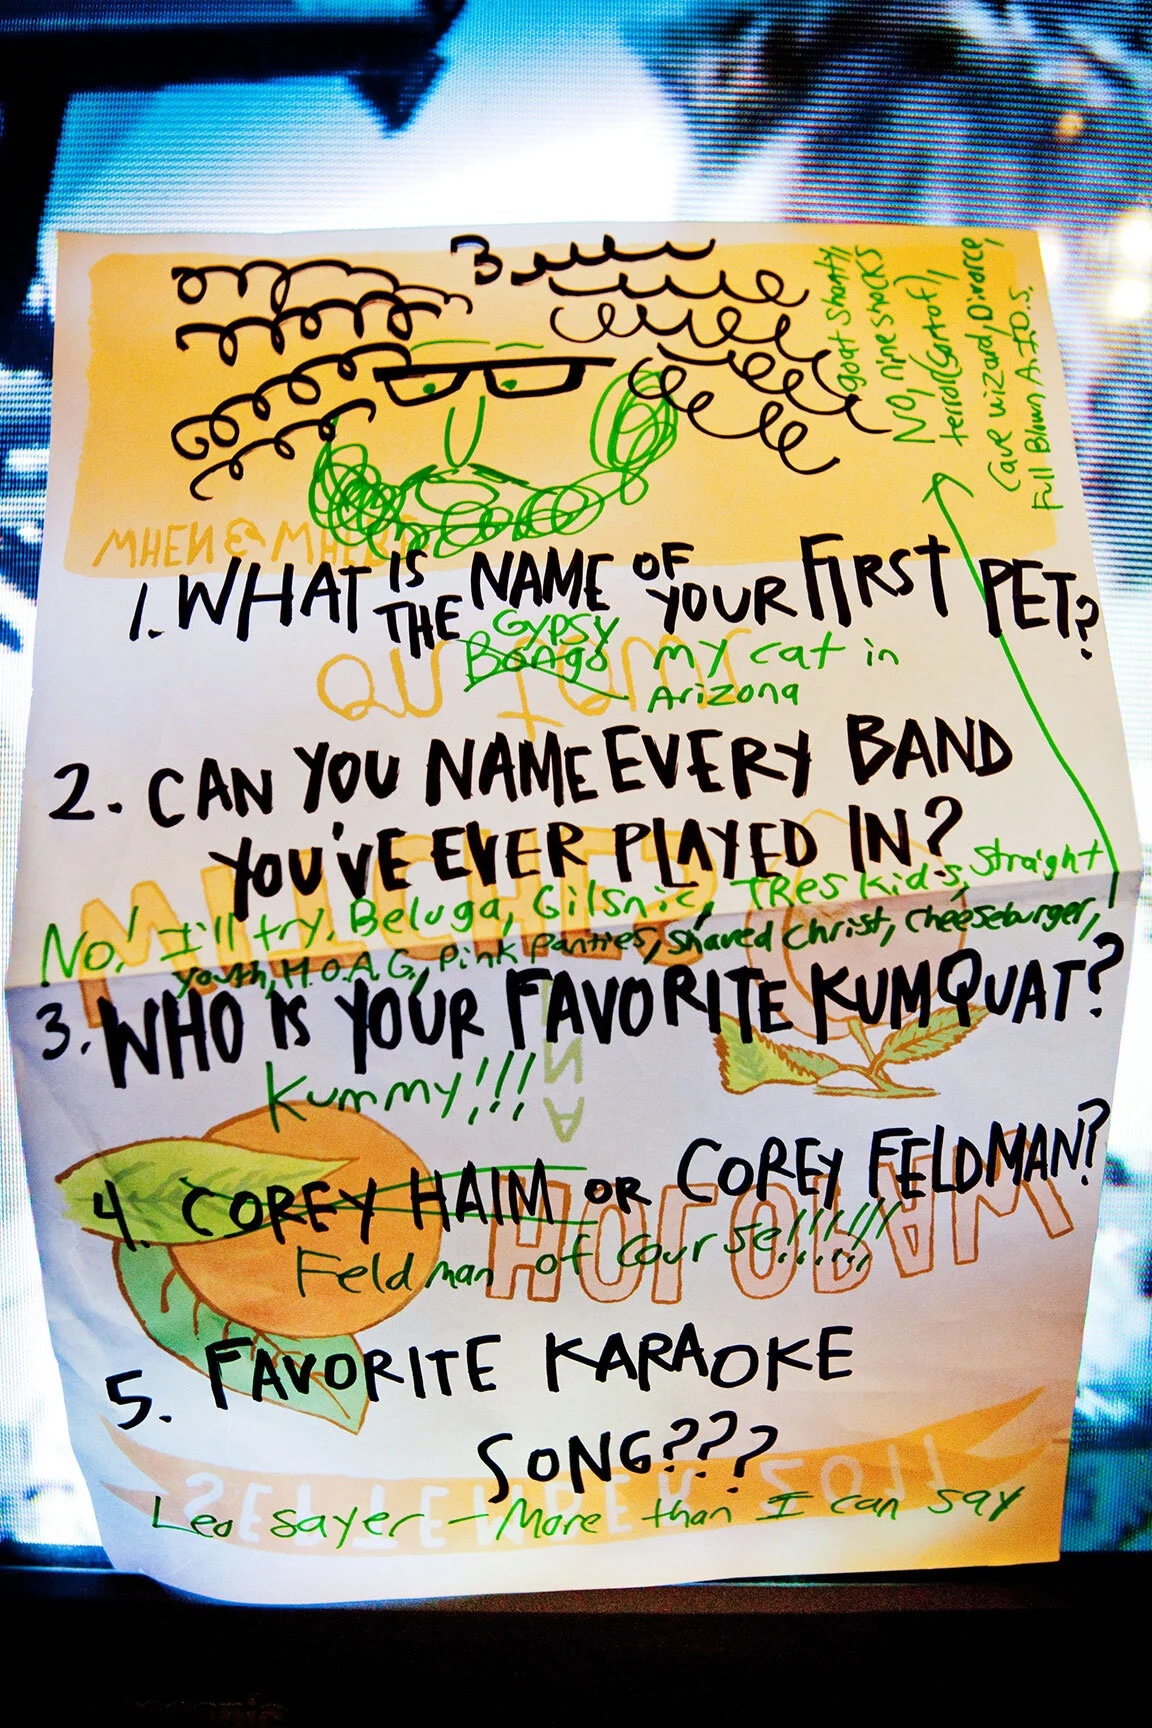 goat Shanty,
NO, nine shocks
terror (sort of),
Cave wizard, Divorce,
Full Blown A.I.D.S.
1. WHAT IS THE NAME OF YOUR FIRST PET?
Gypsy
Bongo my cat in
Arizona
2. CAN YOU NAME EVERY BAND
YOU'VE EVER PLAYED IN?
No! I'll try. Beluga, Gilsnic, TRes Kids, Straight
youth, H.O.A.G., Pink Panties, Shaved Christ, Cheeseburger,
3. WHO IS YOUR FAVORITE KUMQUAT?
Kummy!!!
4. COREY HAIM OR COREY FELDMAN?
Feldman of course!!!!!!
5. FAVORITE KARAOKE
SONG???
Leo Sayer - More than I can say
SEPTEMBER 2011